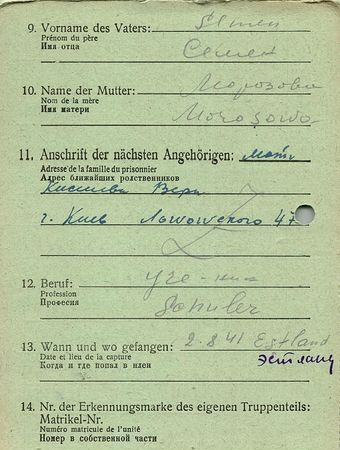 9. Vorname des Vaters: Semen
Prénom du père
Имя отца Семен
10. Name der Mutter: Морозова
Nom de la mère
Имя матери Morosowa
11. Anschrift der nächsten Angehörigen: Мать
Adresse de la famille du prisonnier
Адрес ближайших родственников
Вера
г. Киев 47
12. Beruf:
Profession
Професия Schüler
13. Wann und wo gefangen: 2.8.41 Estland
Date et lieu de la capture
Когда и где попал в плен Эстланд
14. Nr. der Erkennungsmarke des eigenen Truppenteils:
Matrikel-Nr.
Numéro matricule de l'unité
Номер в собственной части